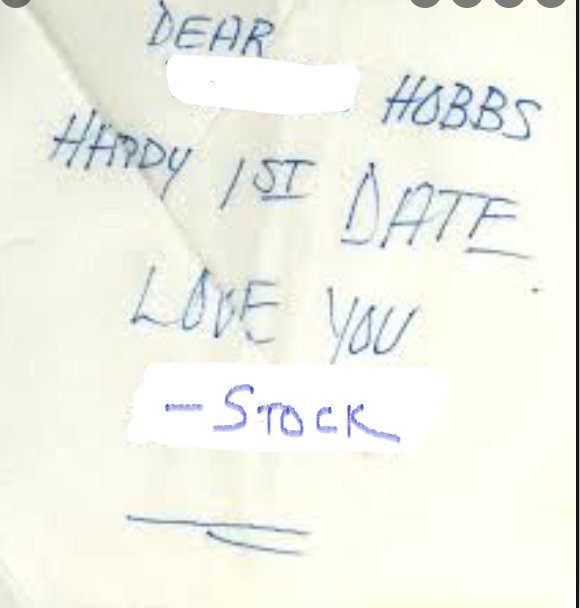 DEAR
HOBBS
HAPPY 1ST DATE
LOVE YOU
- STOCK